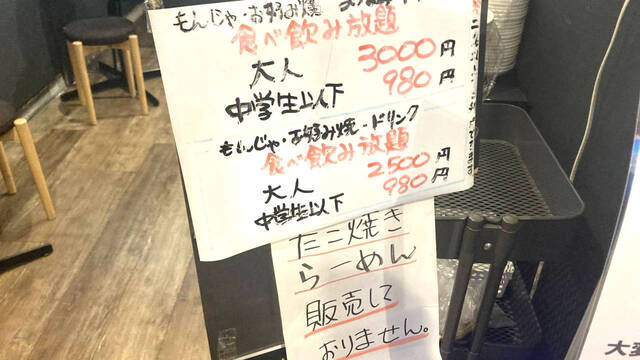 もんじゃ・お好み焼
食べ飲み放題
大人 3000円
中学生以下 980円
もんじゃ・お好み焼・ドリンク
食べ飲み放題
大人 2500円
中学生以下 980円
たこ焼き
らーめん
販売して
おりません。